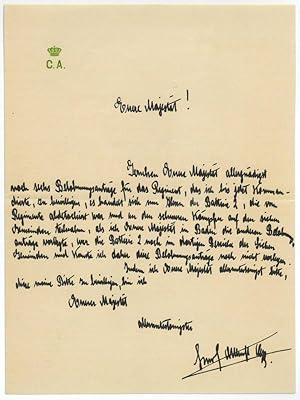 C. A.
Euere Majestät!
Geruhen Euere Majestät allergnädigst
noch sechs Belohnungsanträge für das Regiment, das ich bis jetzt komman-
dierte, zu bewilligen, es handelt sich um Herrn der Batterie 2, die vom
Regimente abdetachiert war und an den schweren Kämpfen auf den sieben
Gemeinden teilnahm, als ich Euere Majestät in Baden die anderen Belohnungs-
anträge vorlegte, war die Batterie 2 noch im dortigen Bereiche der Sieben
Gemeinden und konnte ich daher diese Belohnungsanträge noch nicht vorlegen.
Indem ich Euere Majestät alleruntertänigst bitte,
diese meine Bitte zu bewilligen, bin ich
Euerer Majestät
alleruntertänigster